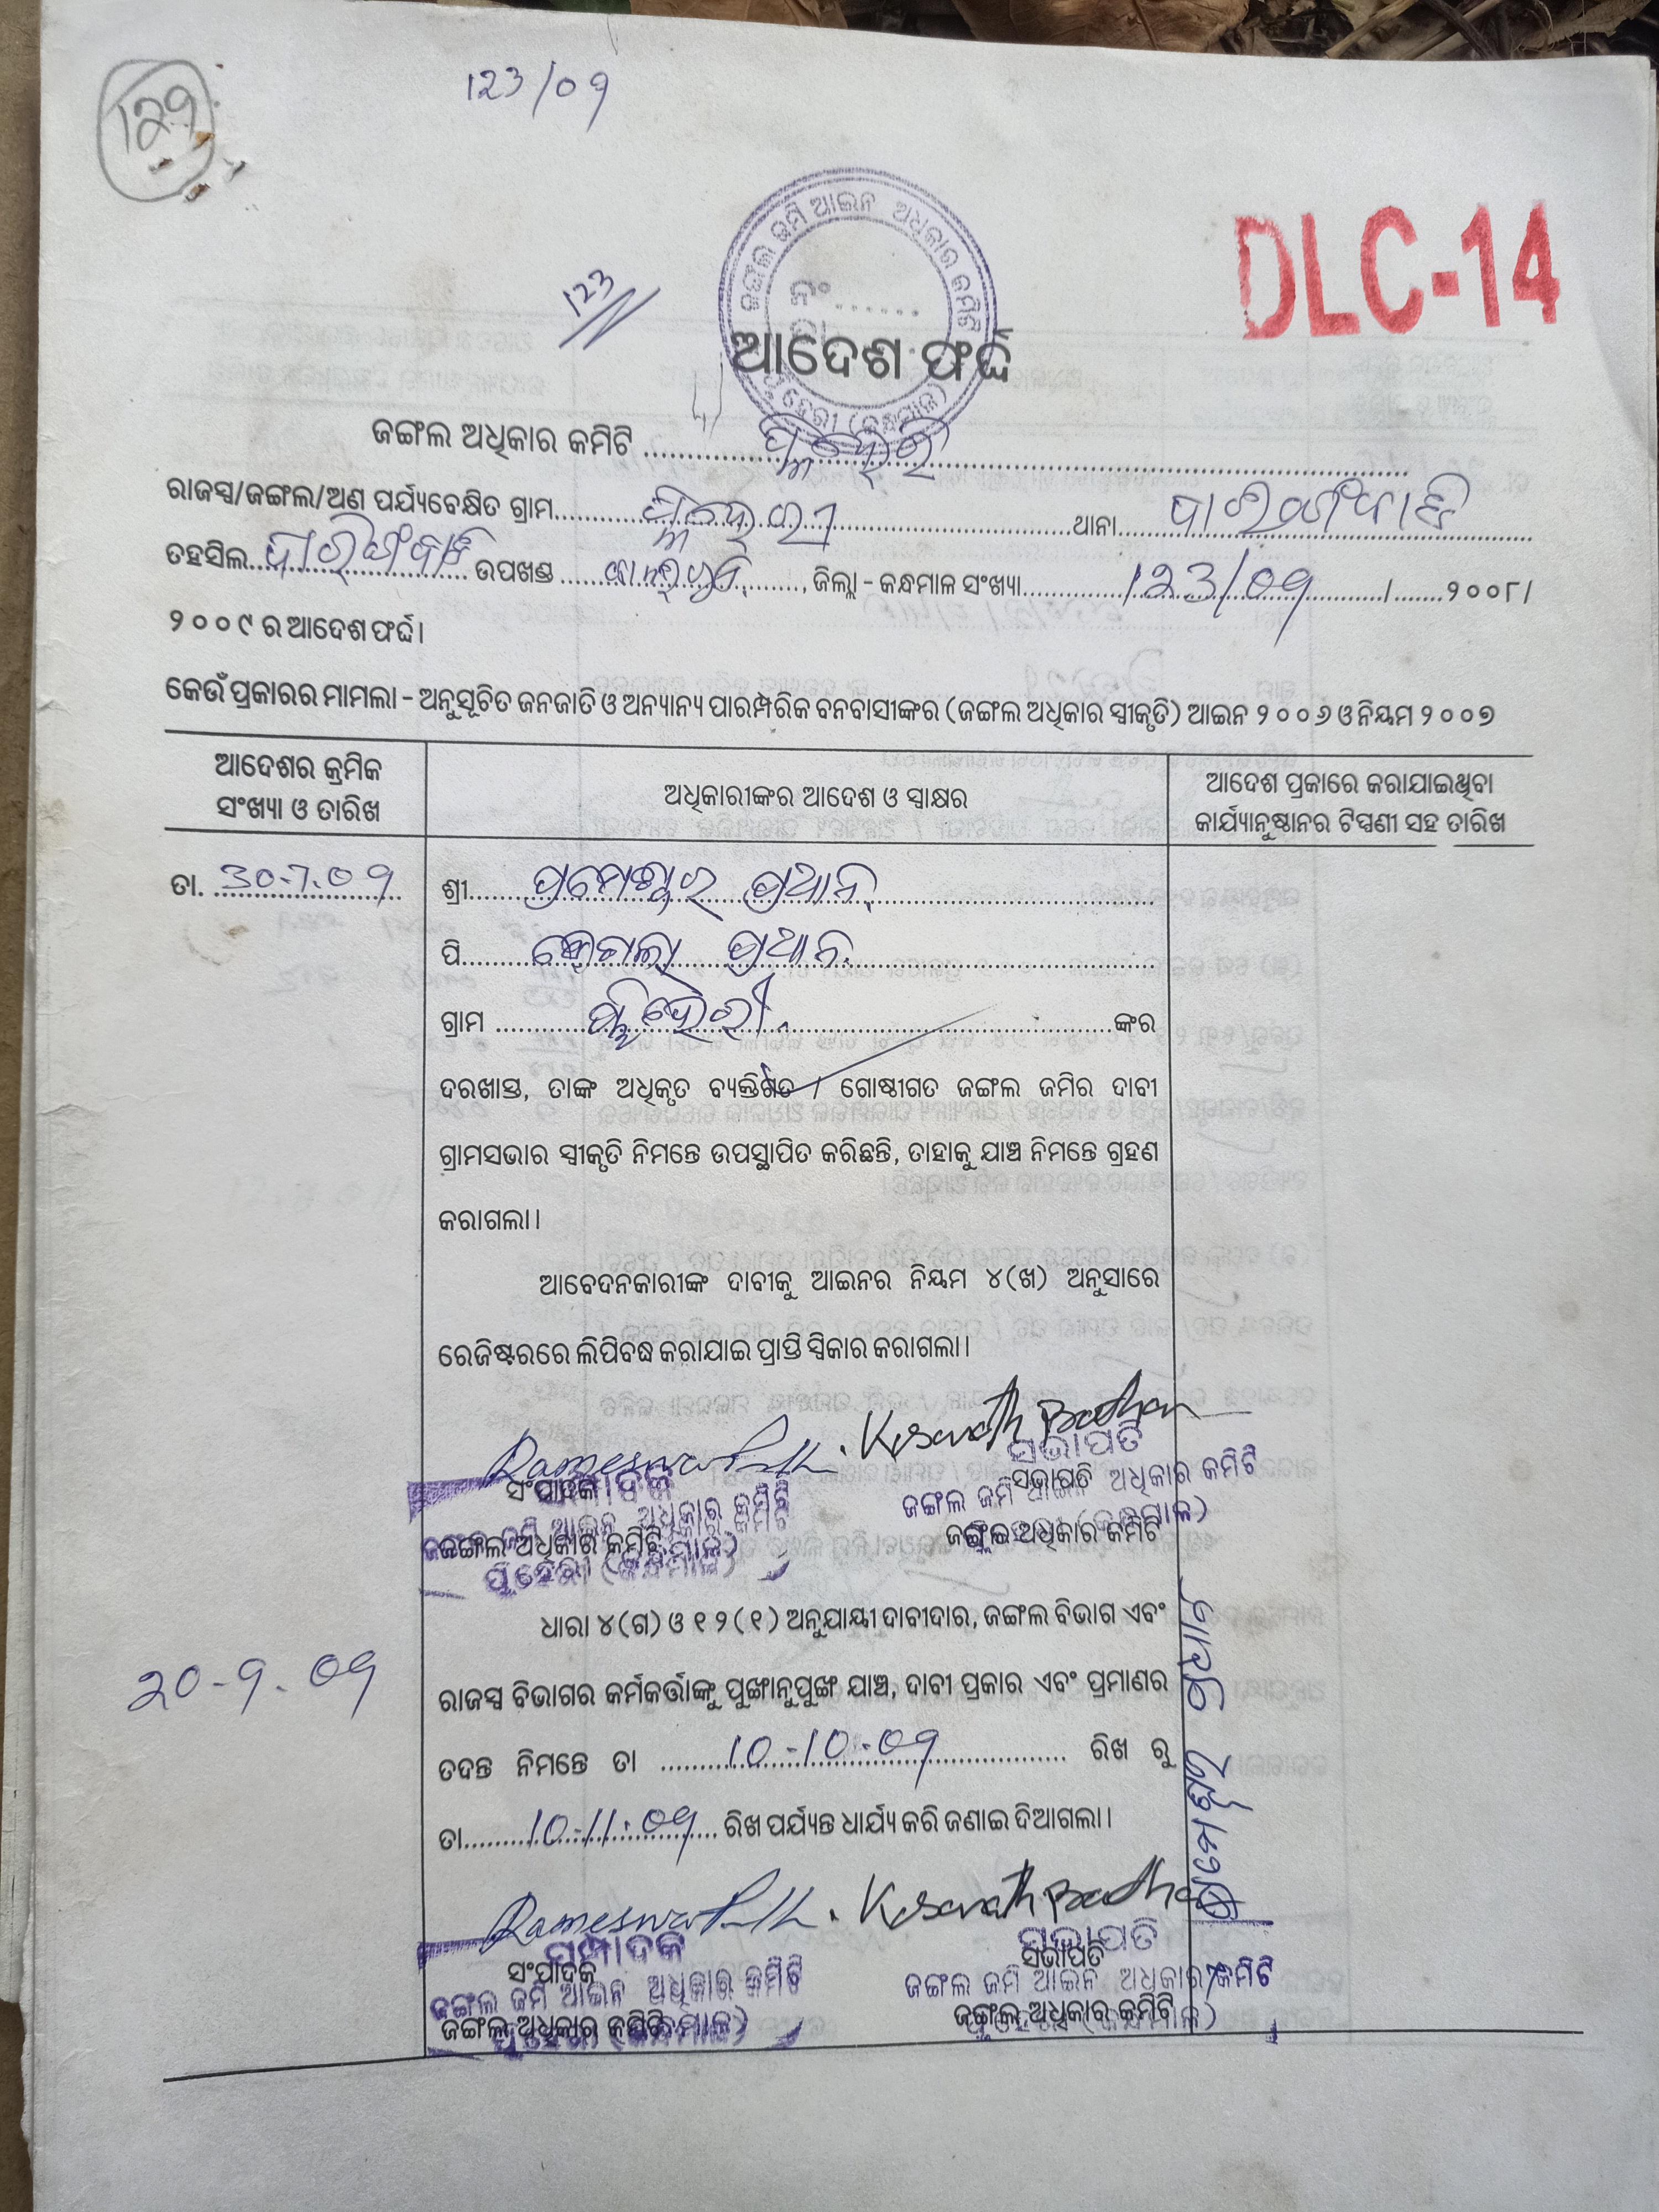 129
123/09
123
DLC-14
ଆଦେଶ ଫର୍ଦ୍ଦ
ଜଙ୍ଗଲ ଅଧିକାର କମିଟି
ରାଜସ୍ୱ/ଜଙ୍ଗଲ/ଅଣ ପର୍ଯ୍ୟବେକ୍ଷିତ ଗ୍ରାମ ଥାନା
ତହସିଲ ଉପଖଣ୍ଡ , ଜିଲ୍ଲା - କନ୍ଧମାଳ ସଂଖ୍ୟା 123/09 / ୨୦୦୮/
୨୦୦୯ ର ଆଦେଶ ଫର୍ଦ୍ଦ।
କେଉଁ ପ୍ରକାରର ମାମଲା - ଅନୁସୂଚିତ ଜନଜାତି ଓ ଅନ୍ୟାନ୍ୟ ପାରମ୍ପରିକ ବନବାସୀଙ୍କର (ଜଙ୍ଗଲ ଅଧିକାର ସ୍ୱୀକୃତି) ଆଇନ ୨୦୦୬ ଓ ନିୟମ ୨୦୦୭
ଆଦେଶର କ୍ରମିକ ସଂଖ୍ୟା ଓ ତାରିଖ
ଅଧିକାରୀଙ୍କର ଆଦେଶ ଓ ସ୍ୱାକ୍ଷର
ଆଦେଶ ପ୍ରକାରେ କରାଯାଇଥିବା
କାର୍ଯ୍ୟାନୁଷ୍ଠାନର ଟିପ୍ପଣୀ ସହ ତାରିଖ
ତା. 30.7.09
ଶ୍ରୀ ପ୍ରମେଶ୍ୱର ପ୍ରଧାନ
ପି ପ୍ରଧାନ
ଗ୍ରାମ ଙ୍କର
ଦରଖାସ୍ତ, ତାଙ୍କ ଅଧିକୃତ ବ୍ୟକ୍ତିଗତ / ଗୋଷ୍ଠୀଗତ ଜଙ୍ଗଲ ଜମିର ଦାବୀ
ଗ୍ରାମସଭାର ସ୍ୱୀକୃତି ନିମନ୍ତେ ଉପସ୍ଥାପିତ କରିଛନ୍ତି, ତାହାକୁ ଯାଞ୍ଚ ନିମନ୍ତେ ଗ୍ରହଣ
କରାଗଲା।
ଆବେଦନକାରୀଙ୍କ ଦାବୀକୁ ଆଇନର ନିୟମ ୪(ଖ) ଅନୁସାରେ
ରେଜିଷ୍ଟରରେ ଲିପିବଦ୍ଧ କରାଯାଇ ପ୍ରାପ୍ତି ସ୍ୱିକାର କରାଗଲା।
Pradhan
ସଂପାଦକ ସଭାପତି
ଜଙ୍ଗଲ ଅଧିକାର କମିଟି ଜଙ୍ଗଲ ଅଧିକାର କମିଟି
20-9-09
ଧାରା ୪(ଗ) ଓ ୧୨(୧) ଅନୁଯାୟୀ ଦାବୀଦାର, ଜଙ୍ଗଲ ବିଭାଗ ଏବଂ
ରାଜସ୍ୱ ବିଭାଗର କର୍ମକର୍ତ୍ତାଙ୍କୁ ପୁଙ୍ଖାନୁପୁଙ୍ଖ ଯାଞ୍ଚ, ଦାବୀ ପ୍ରକାର ଏବଂ ପ୍ରମାଣର
ତଦନ୍ତ ନିମନ୍ତେ ତା 10-10-09 ରିଖ ରୁ
ତା 10-11-09 ରିଖ ପର୍ଯ୍ୟନ୍ତ ଧାର୍ଯ୍ୟ କରି ଜଣାଇ ଦିଆଗଲା।
ସଂପାଦକ ସଭାପତି
ଜଙ୍ଗଲ ଅଧିକାର କମିଟି ଜଙ୍ଗଲ ଅଧିକାର କମିଟି